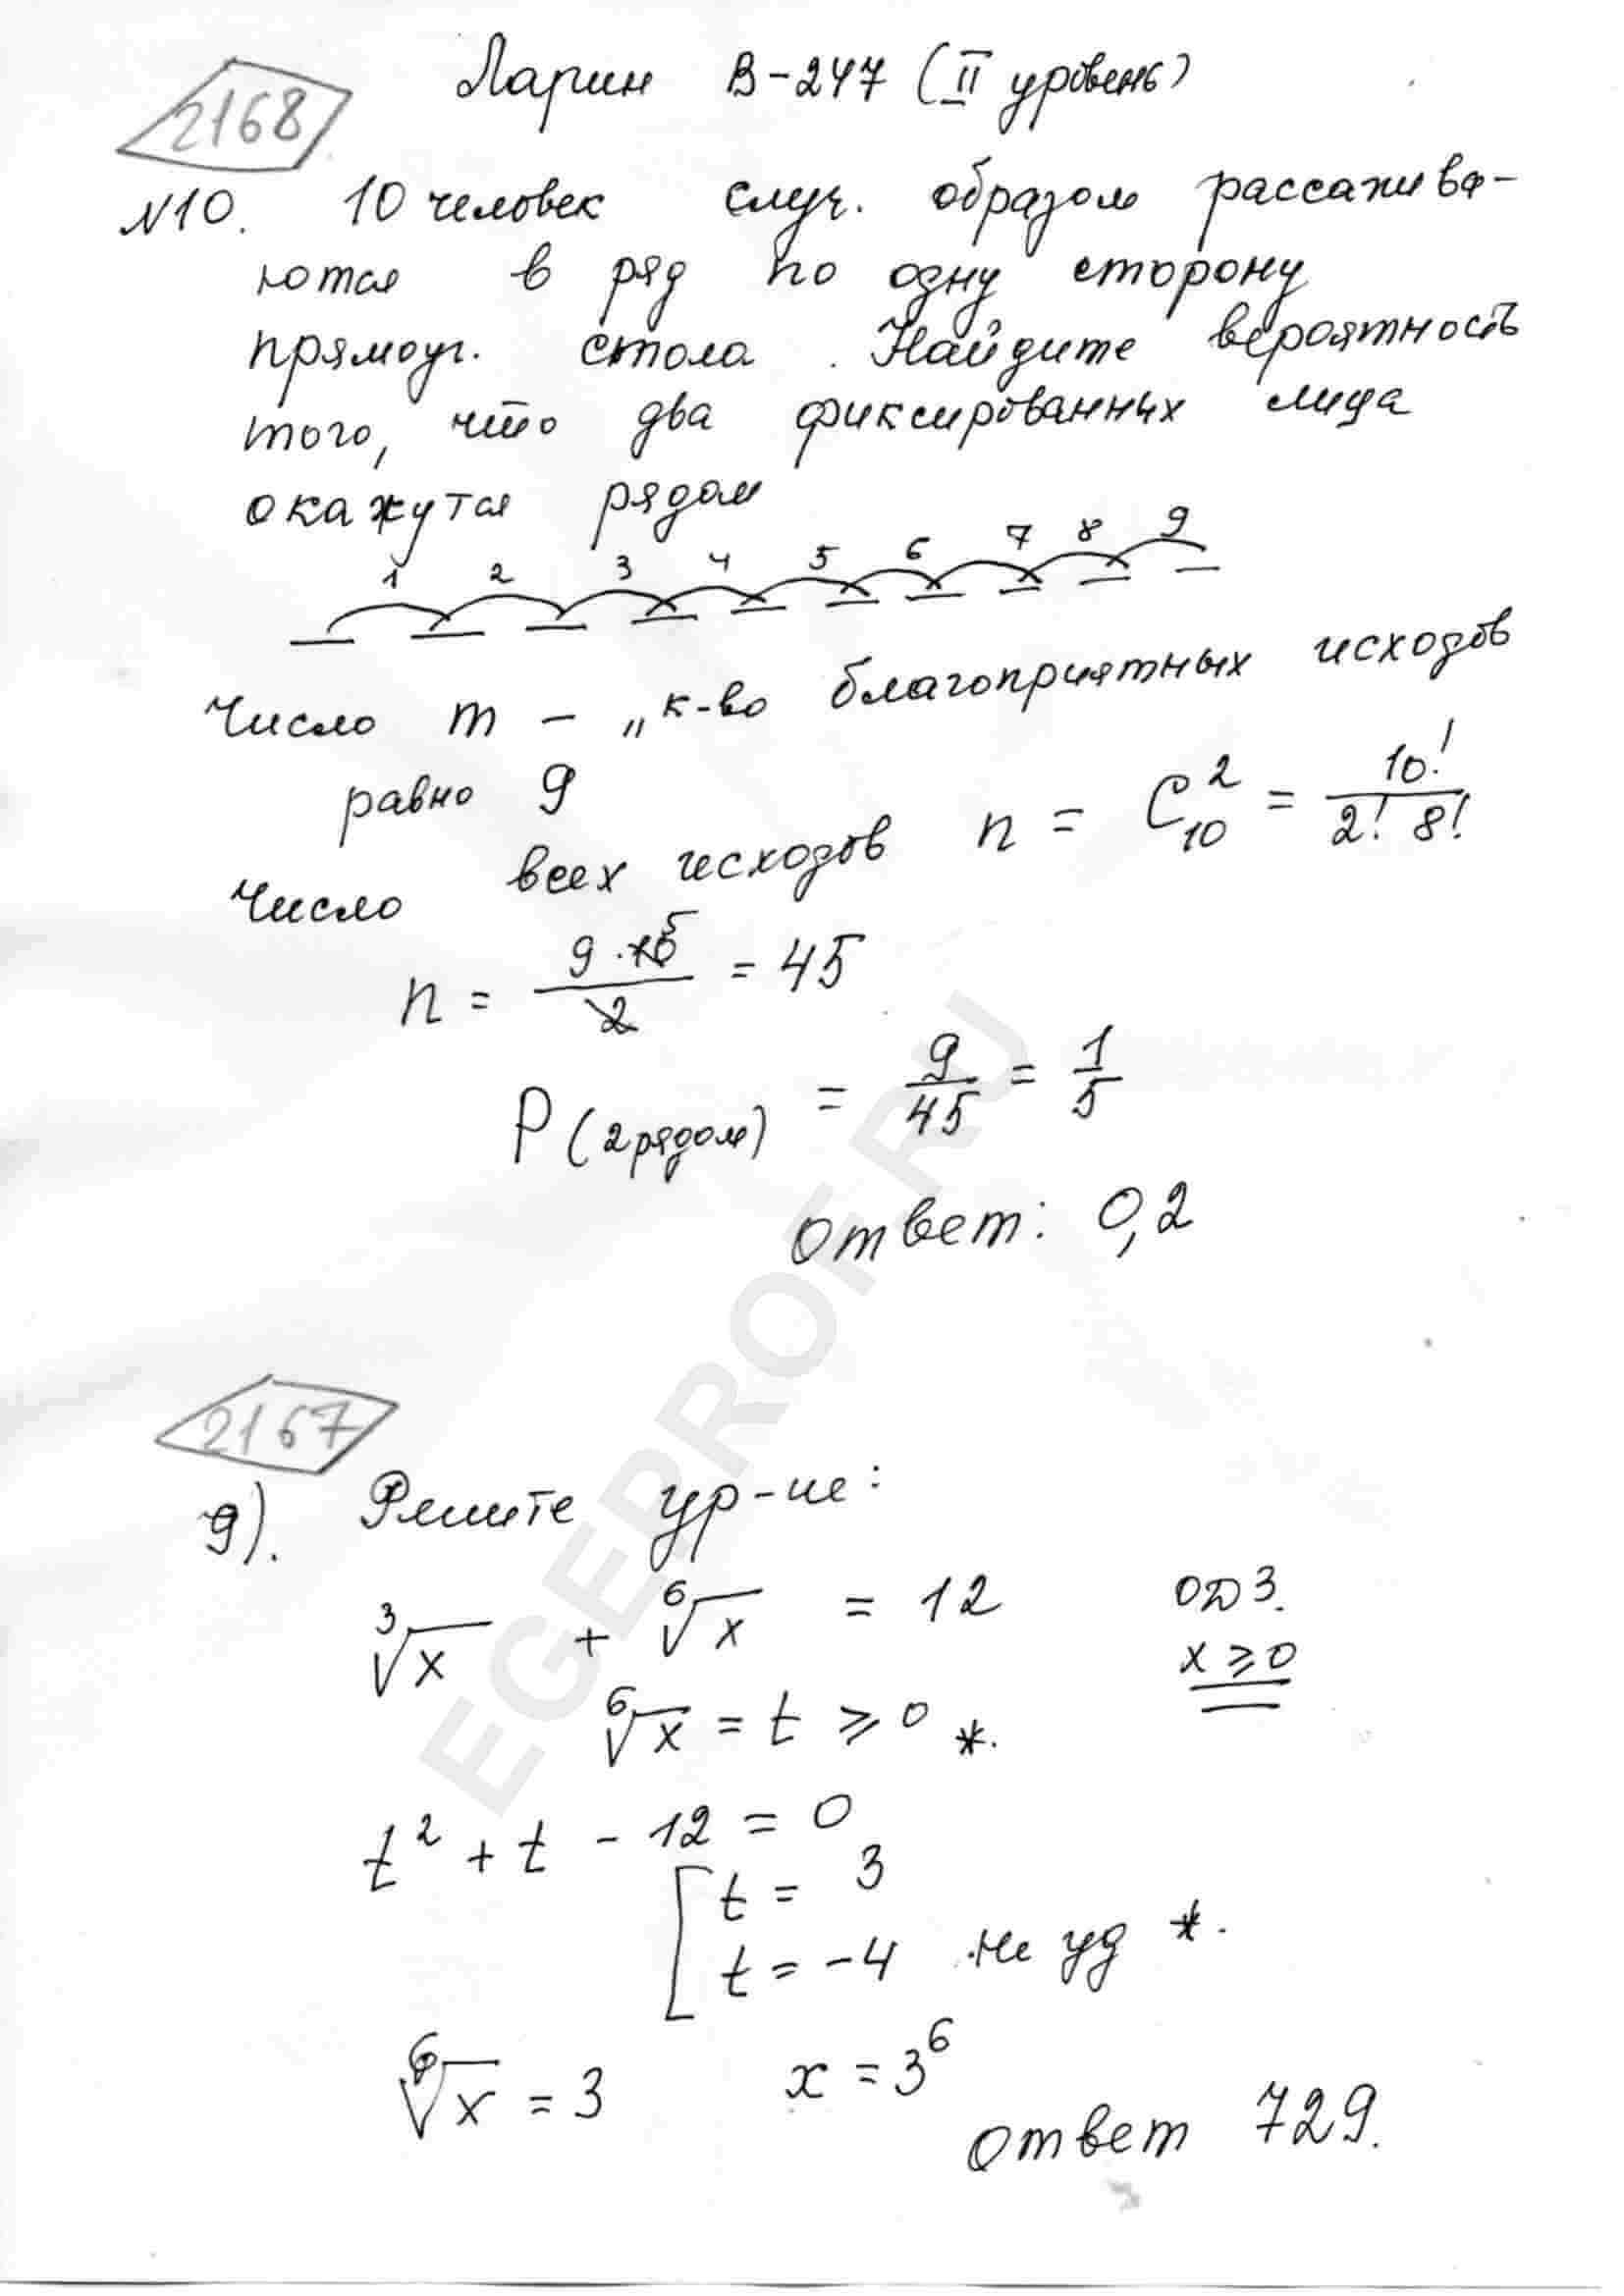 2168
Ларин В-247 (II уровень)
№10. 10 человек случ. образом рассажива-
ются в ряд по одну сторону
прямоуг. стола. Найдите вероятность
того, что два фиксированных лица
окажутся рядом
1 2 3 4 5 6 7 8 9
Число m - „ к-во благоприятных исходов
равно 9
Число всех исходов n = C₁₀² = 10!/(2! 8!)
n = 9·10/2 = 45
5
P(2 рядом) = 9/45 = 1/5
Ответ: 0,2
2167
9). Решите ур-ие:
∛x + ⁶√x = 12 ОДЗ.
x ≥ 0
⁶√x = t ≥ 0 *.
t² + t - 12 = 0
[ t = 3
t = -4 не уд *.
⁶√x = 3 x = 3⁶
Ответ 729.
EGEPROF.RU